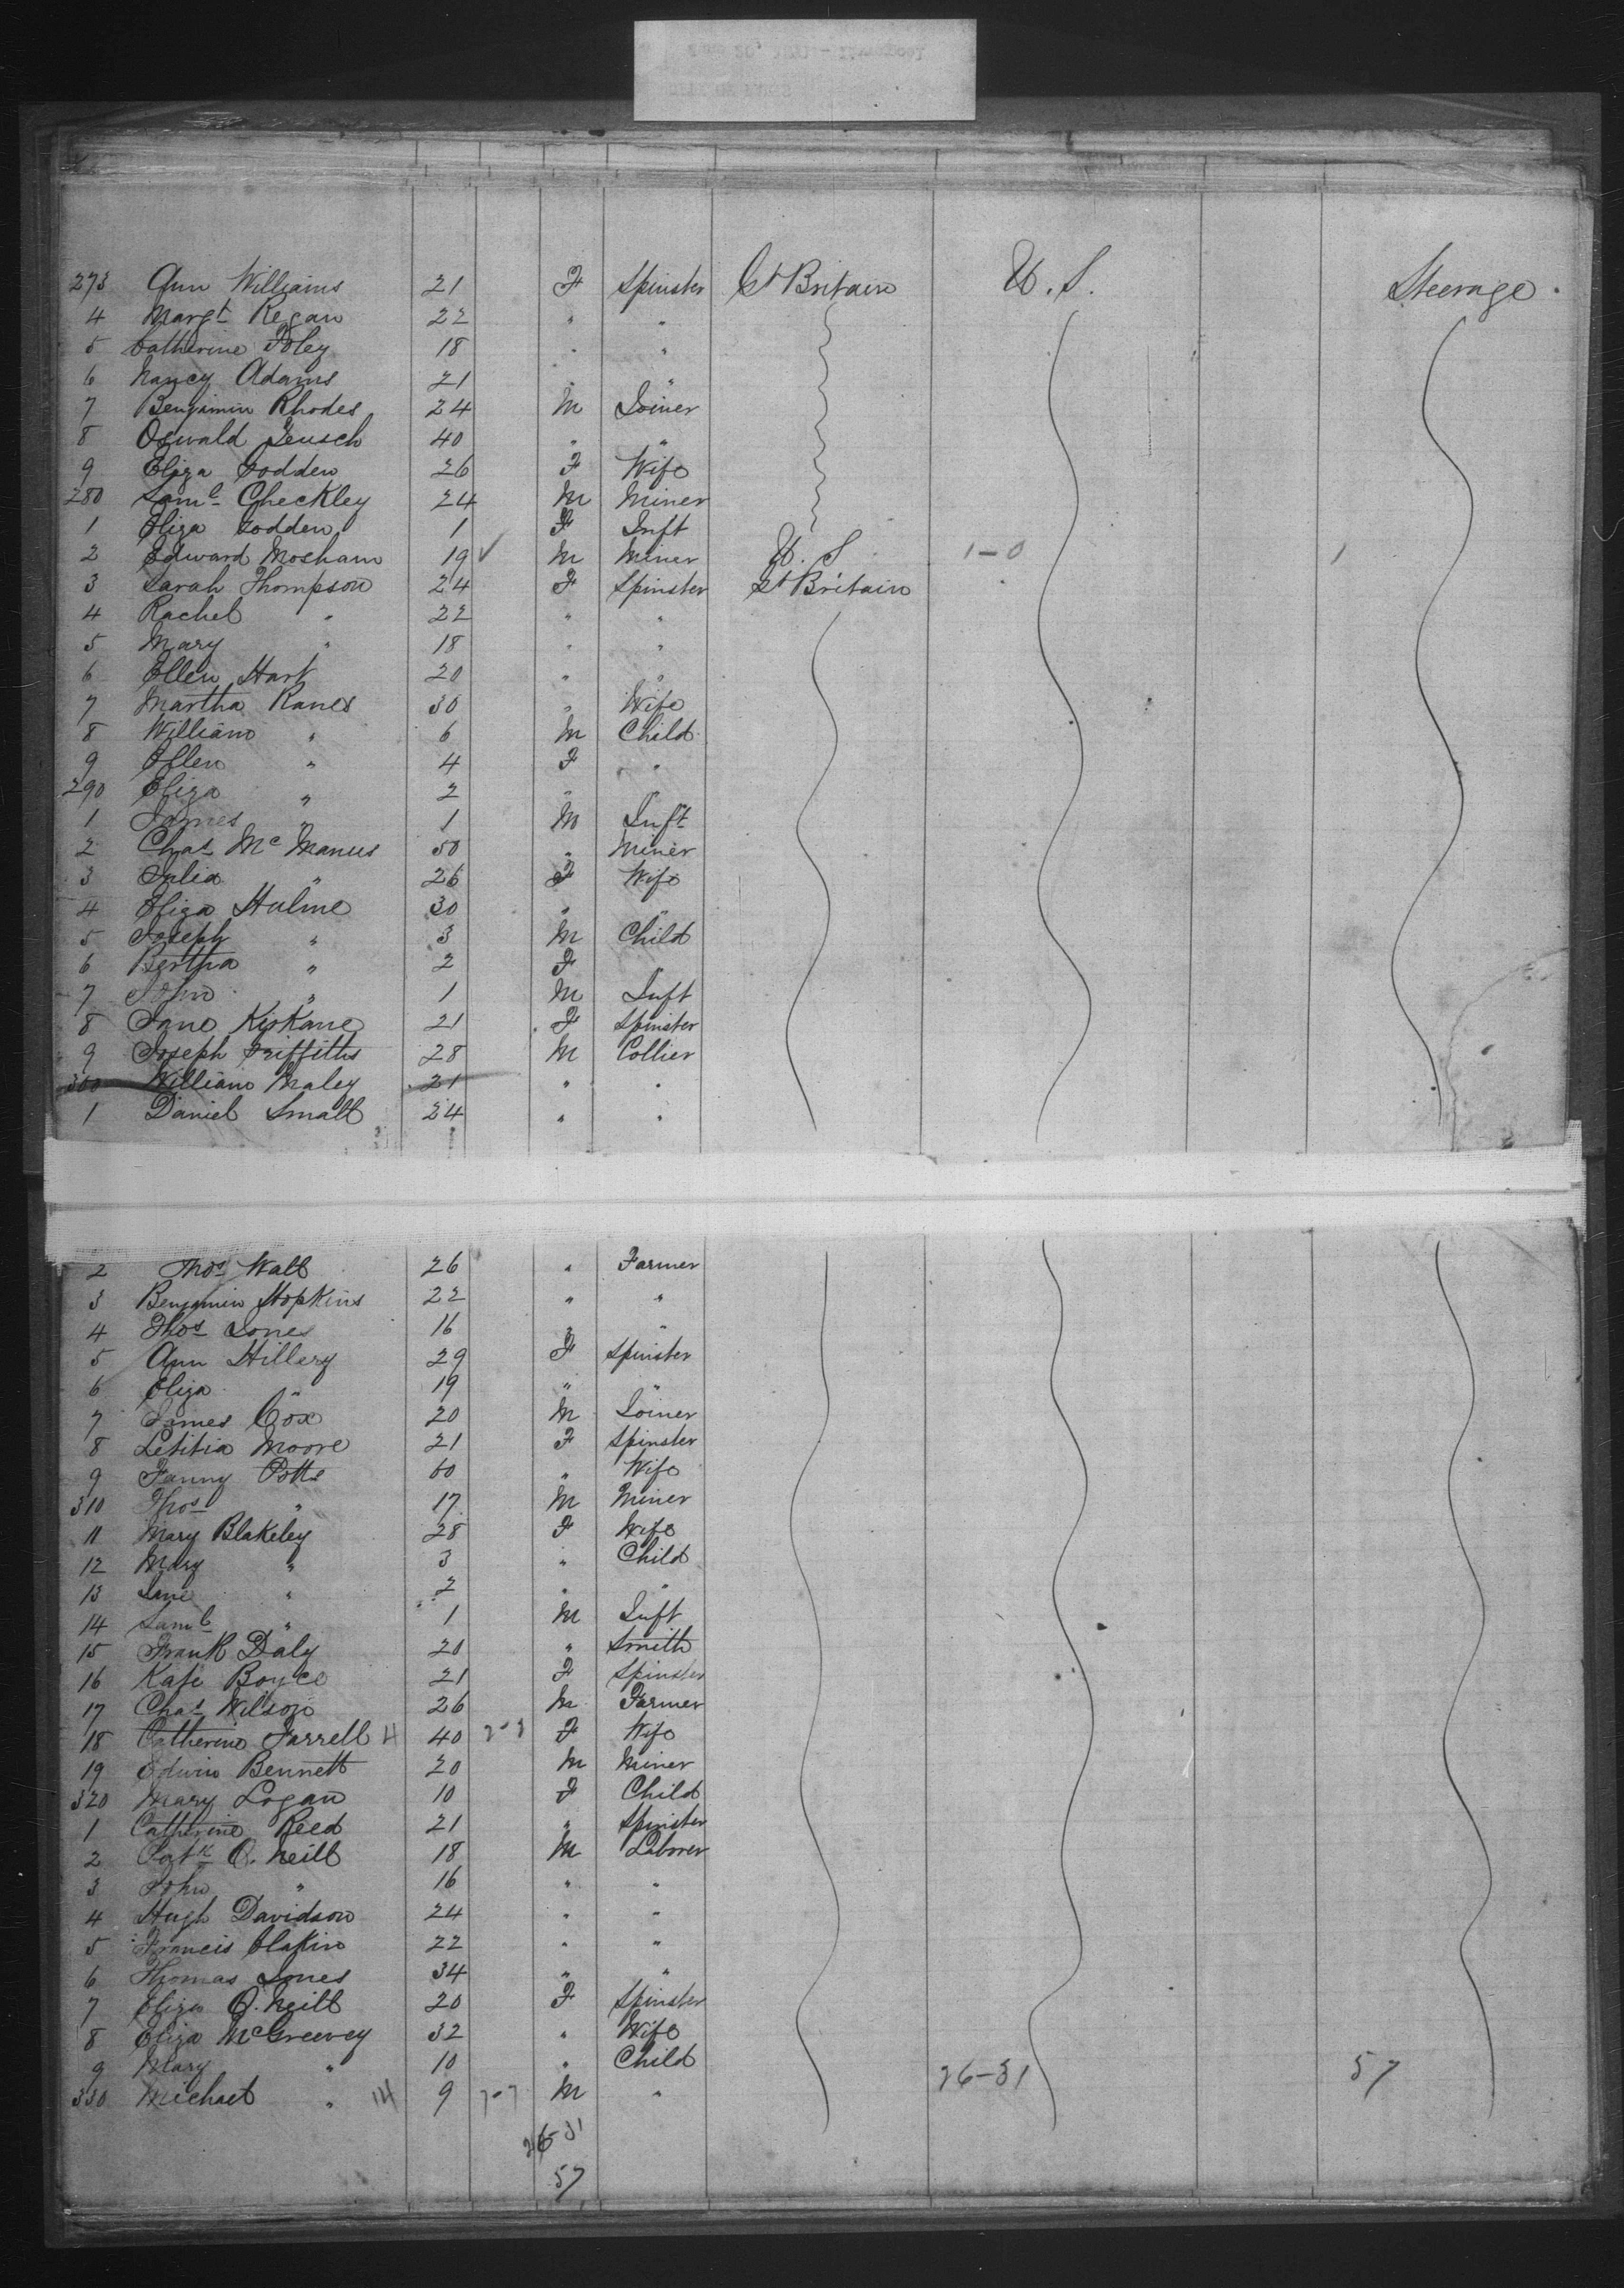 273 Ann Williams 21 F Spinster Gt Britain U.S. Steerage.
4 Margt Regan 22 " "
5 Catherine Foley 18 " "
6 Nancy Adams 21 " "
7 Benjamin Rhodes 24 M Joiner
8 Oswald 40 " "
9 Eliza Godden 26 F Wife
280 Saml Checkley 24 M Miner
1 Eliza Godden 1 F Inft
2 Edward Mosham 19 ✓ M Miner U.S. 1-0 1
3 Sarah Thompson 24 F Spinster Gt Britain
4 Rachel " 22 " "
5 Mary " 18 " "
6 Ellen Hart 20 " "
7 Martha Ranes 30 " Wife
8 William " 6 M Child
9 Ellen " 4 F "
290 Eliza " 2 " "
1 James " 1 M Inft
2 Chas McManus 50 " Miner
3 Julia " 26 F Wife
4 Eliza Hulme 30 " "
5 Joseph " 3 M Child
6 Bertha " 2 F "
7 John " 1 M Inft
8 Jane Kiskane 21 F Spinster
9 Joseph Griffiths 28 M Collier
300 William Maley 21 " "
1 Daniel Small 24 " "
2 Thos Wall 26 " Farmer
3 Benjamin Hopkins 22 " "
4 Thos Jones 16 " "
5 Ann Hillery 29 F Spinster
6 Eliza " 19 " "
7 James Cox 20 M Joiner
8 Letitia Moore 21 F Spinster
9 Fanny Potts 60 " Wife
310 Thos " 17 M Miner
11 Mary Blakeley 28 F Wife
12 Mary " 3 " Child
13 Jane " 2 " "
14 Saml " 1 M Inft
15 Frank Daly 20 " Smith
16 Kate Boyce 21 F Spinster
17 Chas Wilson 26 M Farmer
18 Catherine Farrell 40 F Wife
19 Edwin Bennett 20 M Miner
320 Mary Logan 10 F Child
1 Catherine Reed 21 " Spinster
2 Patk O.Neill 18 M Laborer
3 John " 16 " "
4 Hugh Davidson 24 " "
5 Francis Clakin 22 " "
6 Thomas Jones 34 " "
7 Eliza O.Neill 20 F Spinster
8 Eliza McGreevey 32 " Wife
9 Mary " 10 " Child 26-31 57
330 Michael " 9 M "
26-31
57